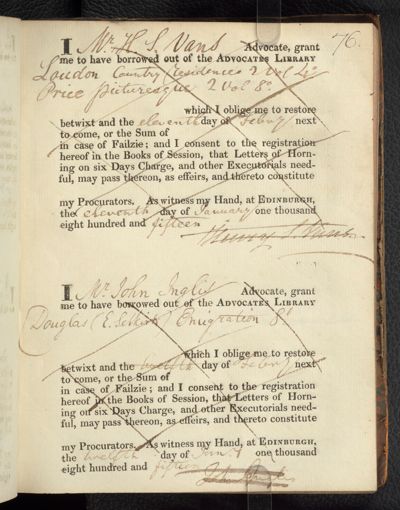 76.
I Mr. H. S. Vans Advocate, grant
me to have borrowed out of the ADVOCATES LIBRARY
Loudon Country Residences 2 Vol 4o
Price picturesque 2 Vol 8o
which I oblige me to restore
betwixt and the eleventh day of Febry next
to come, or the Sum of
in case of Failzie; and I consent to the registration
hereof in the Books of Session, that Letters of Horn-
ing on six Days Charge, and other Executorials need-
ful, may pass thereon, as effeirs, and thereto constitute
my Procurators. As witness my Hand, at EDINBURGH,
the eleventh day of January one thousand
eight hundred and fifteen
Henry S Vans
I Mr. John Inglis Advocate, grant
me to have borrowed out of the ADVOCATES LIBRARY
Douglas (E. Selkirk) Emigration 8o
which I oblige me to restore
betwixt and the twelfth day of Febry next
to come, or the Sum of
in case of Failzie; and I consent to the registration
hereof in the Books of Session, that Letters of Horn-
ing on six Days Charge, and other Executorials need-
ful, may pass thereon, as effeirs, and thereto constitute
my Procurators. As witness my Hand, at EDINBURGH,
the twelfth day of Janry one thousand
eight hundred and fifteen
John Inglis